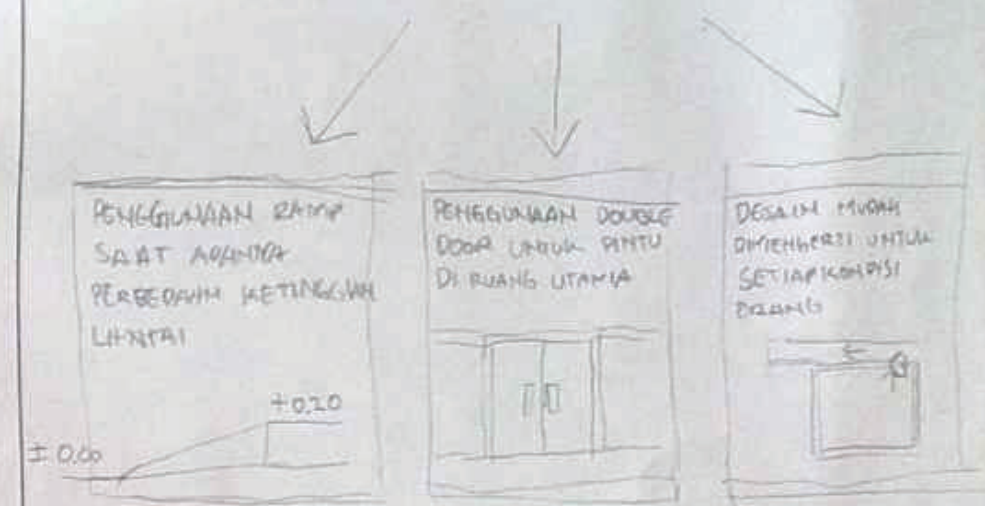 PENGGUNAAN RAMP
SAAT ADANYA
PERBEDAAN KETINGGIAN
LANTAI
+0.20
± 0.00
PENGGUNAAN DOUBLE
DOOR UNTUK PINTU
DI RUANG UTAMA
DESAIN MUDAH
DIMENGERTI UNTUK
SETIAP KONDISI
ORANG